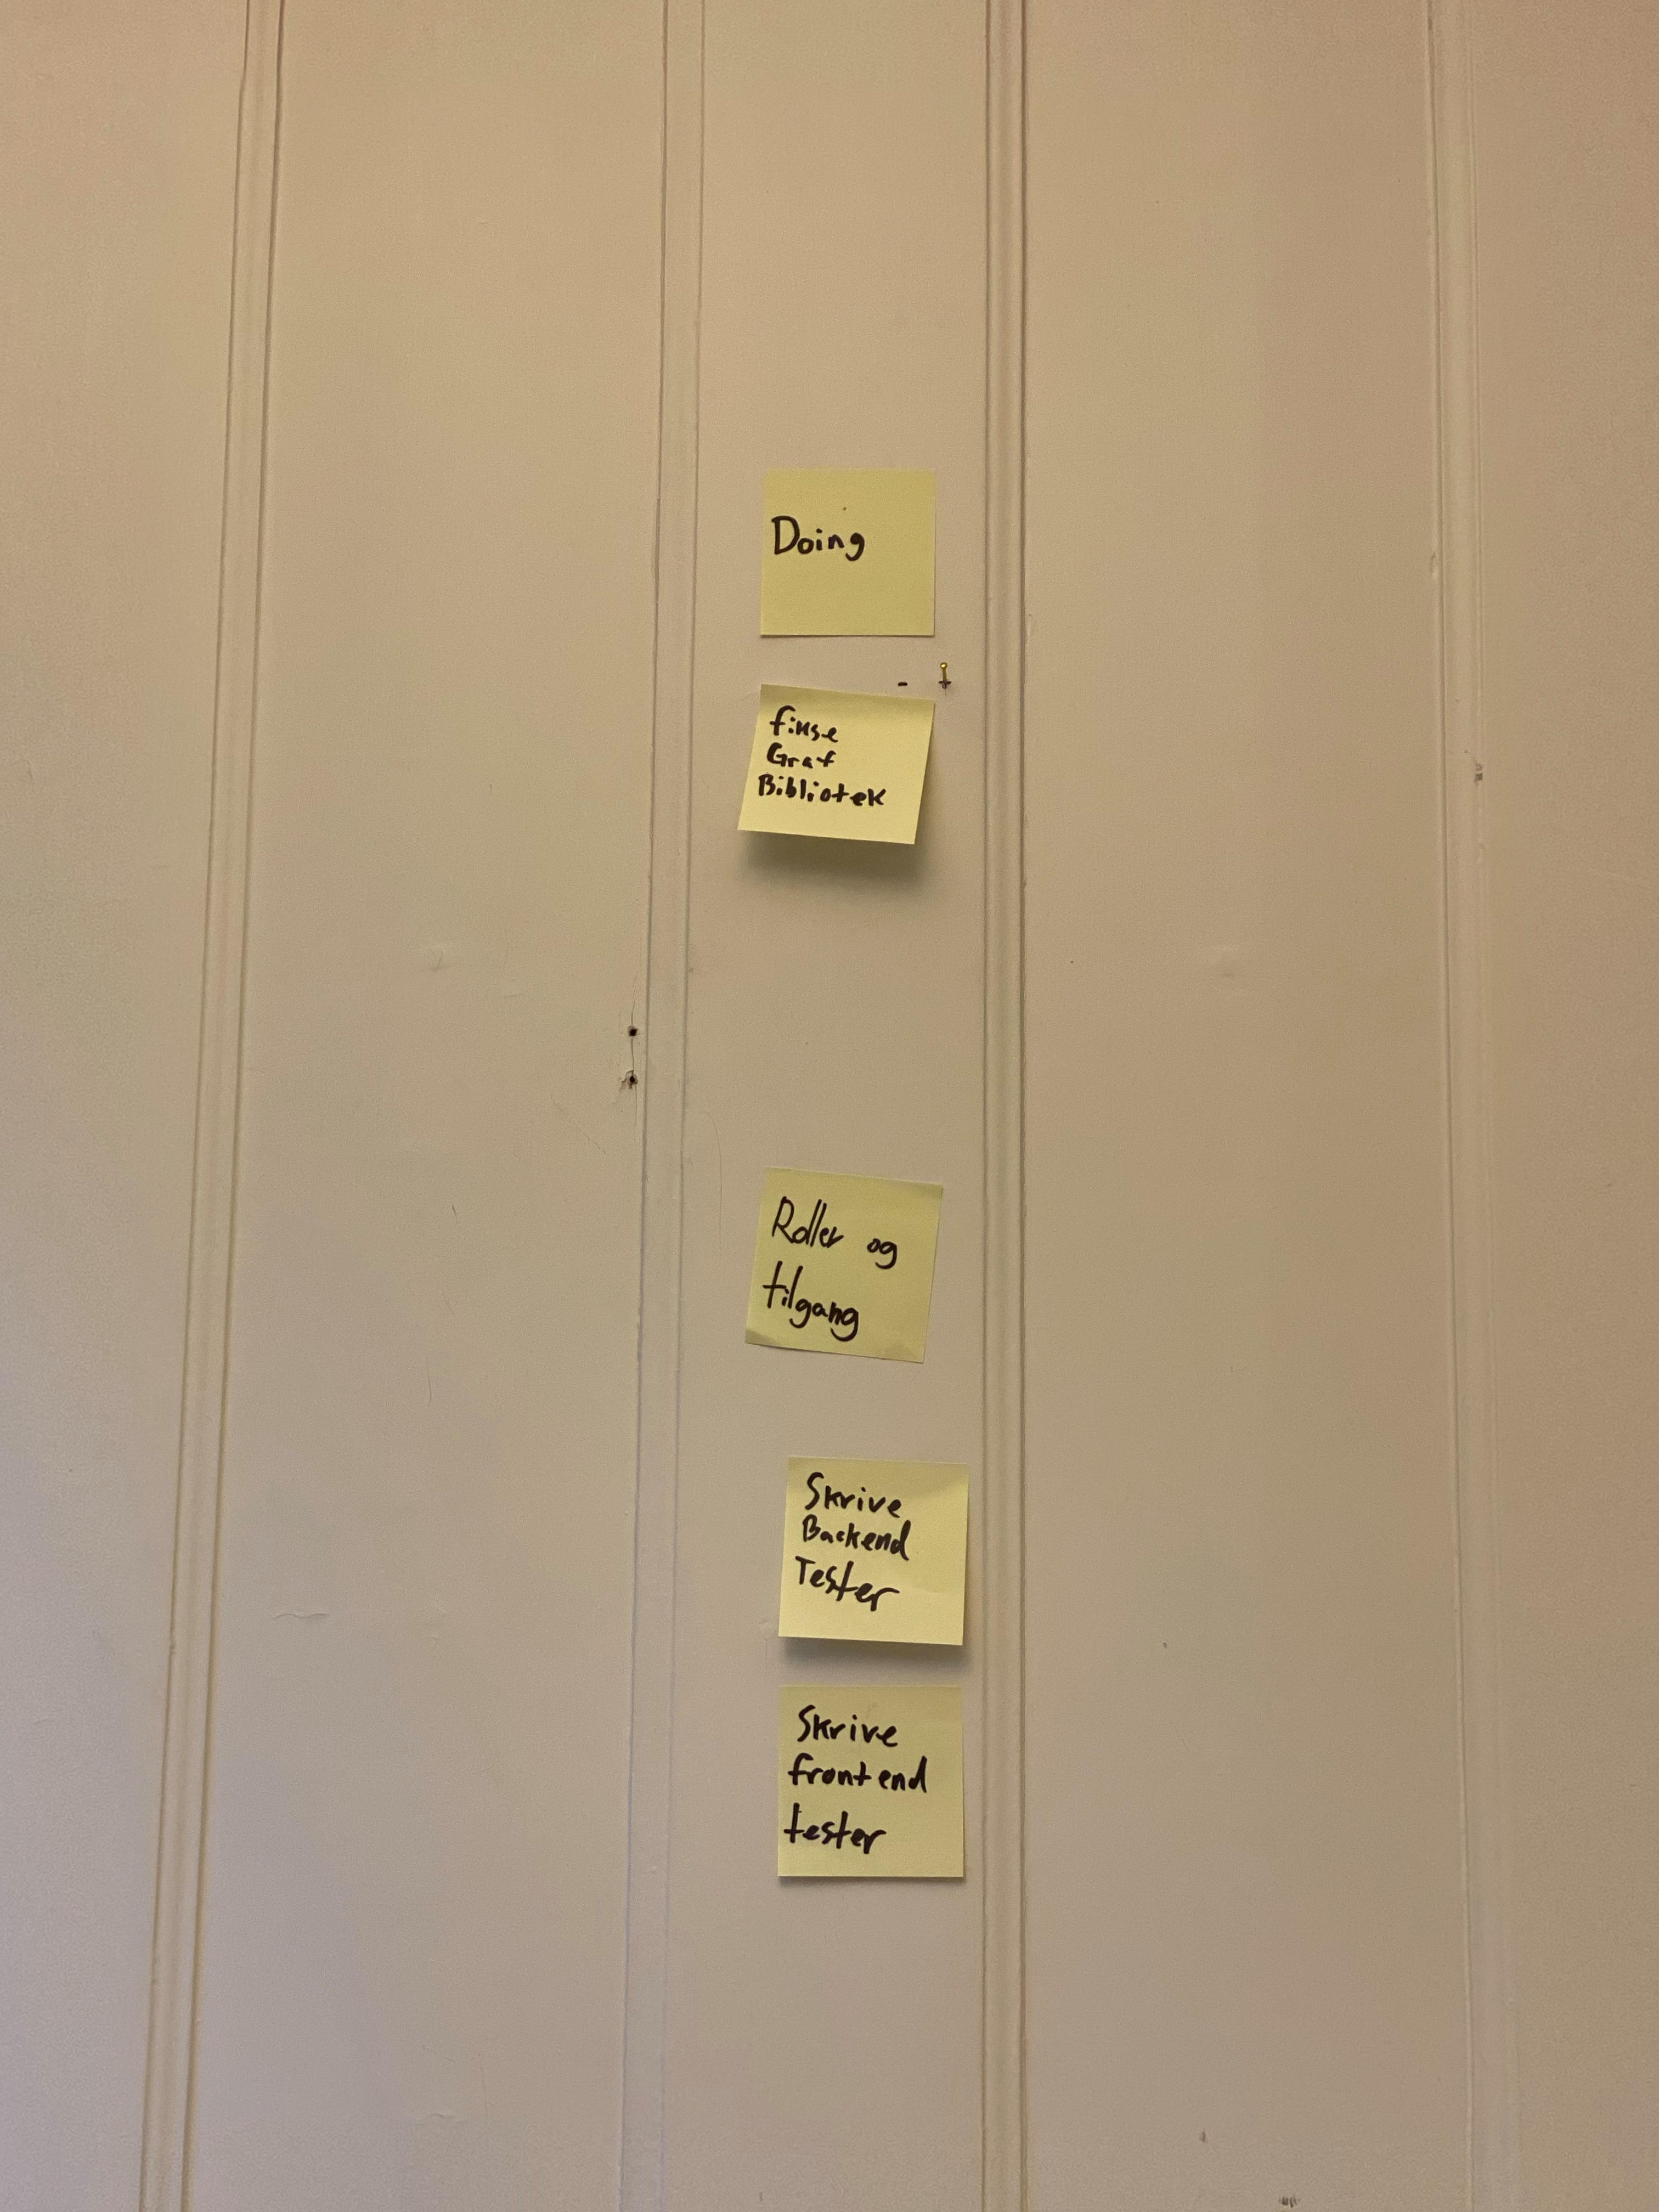 Doing
fikse
Graf
Bibliotek
Roller og
tilgang
Skrive
Backend
Tester
Skrive
frontend
tester